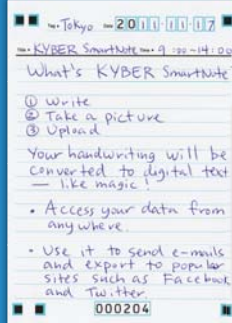 Tag. Tokyo Date 2011-11-17
Title. KYBER SmartNote Time. 9:00~14:00
What's KYBER SmartNote
① Write
② Take a picture
③ Upload
Your handwriting will be
converted to digital text
— like magic!
• Access your data from
anywhere.
• Use it to send e-mails
and export to popular
sites such as Facebook
and Twitter.
000204